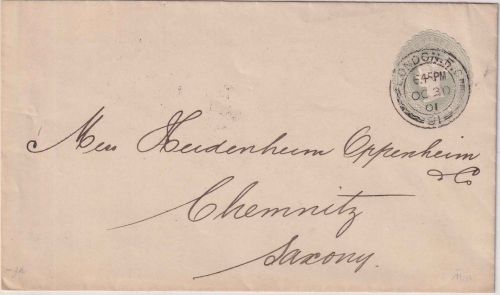 LONDON.E.C
6.45PM
OC 30
01
91
Mess Heidenheim Oppenheim
& C
Chemnitz
Saxony.